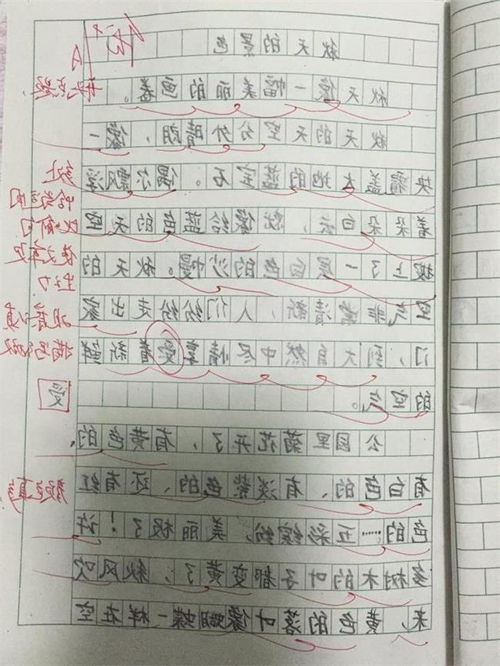 秋天的景色
秋天像一幅美丽的画卷。
秋天的天空分外晴朗,像一
块覆盖大地的蓝宝石。偶尔飘浮
着朵朵白云,就像给蓝色的天空
披上了一层白色的沙幔。秋天的
空气非常清新,人们纷纷走出家
门,到大自然中尽情享受着新鲜
受
的空气。
公园里菊花开了,有黄色的,
有白色的、有淡紫色的、还有红
色的……五彩缤纷,美丽极了!许
多树木的叶子都变黄了;秋风吹
来,黄色的落叶像蝴蝶一样在空